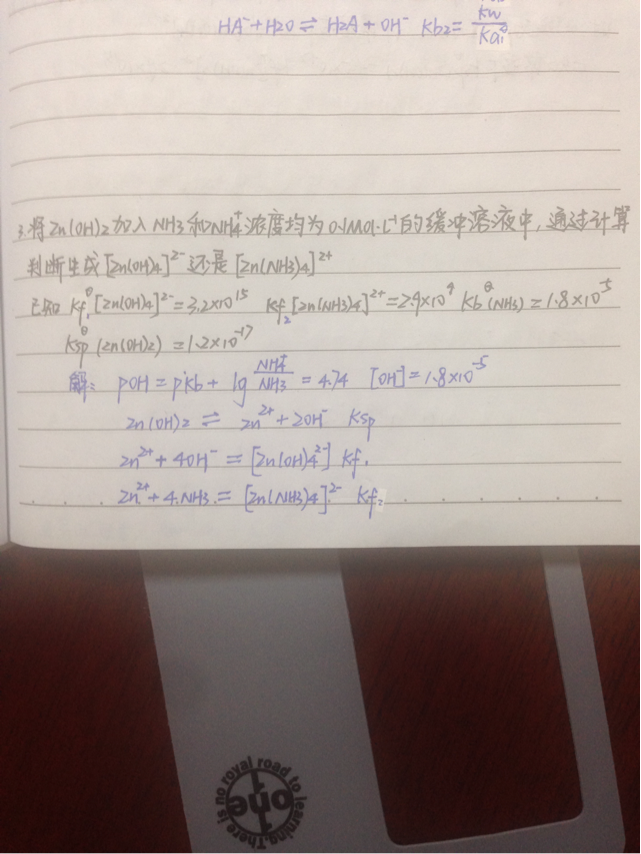 HA⁻+H2O ⇌ H2A + OH⁻ Kb2 = Kw/Ka₁
3.将Zn(OH)2加入NH3和NH4⁺浓度均为0.1Mol·L⁻¹的缓冲溶液中,通过计算
判断生成[Zn(OH)4]²⁻还是[Zn(NH3)4]²⁺
已知 Kf₁^θ[Zn(OH)4]²⁻=3.2×10¹⁵ Kf₂[Zn(NH3)4]²⁺=2.9×10⁹ Kb^θ(NH3)=1.8×10⁻⁵
Ksp^θ(Zn(OH)2)=1.2×10⁻¹⁷
解: pOH = pkb + lg NH4⁺/NH3 = 4.74 [OH⁻]=1.8×10⁻⁵
Zn(OH)2 ⇌ Zn²⁺+2OH⁻ Ksp
Zn²⁺+4OH⁻ = [Zn(OH)4²⁻] Kf₁
Zn²⁺+4.NH3 = [Zn(NH3)4]²⁻ Kf₂
There is no royal road to learning.
one